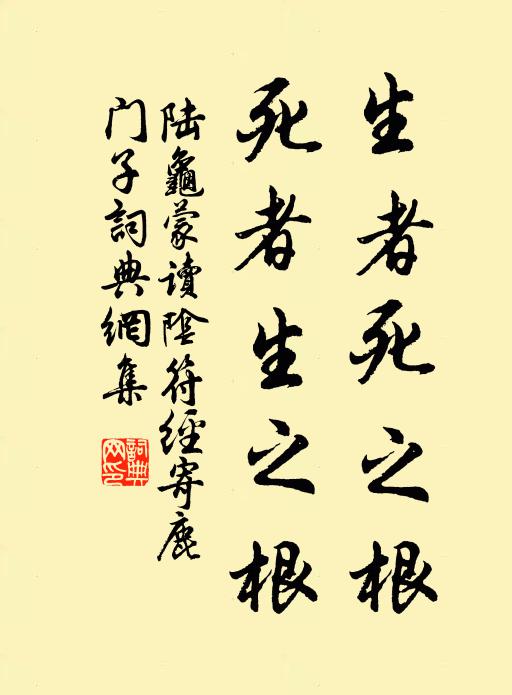 生者死之根
死者生之根
陆龜蒙读陰符經寄鹿
门子詞典網集
詞典
网印